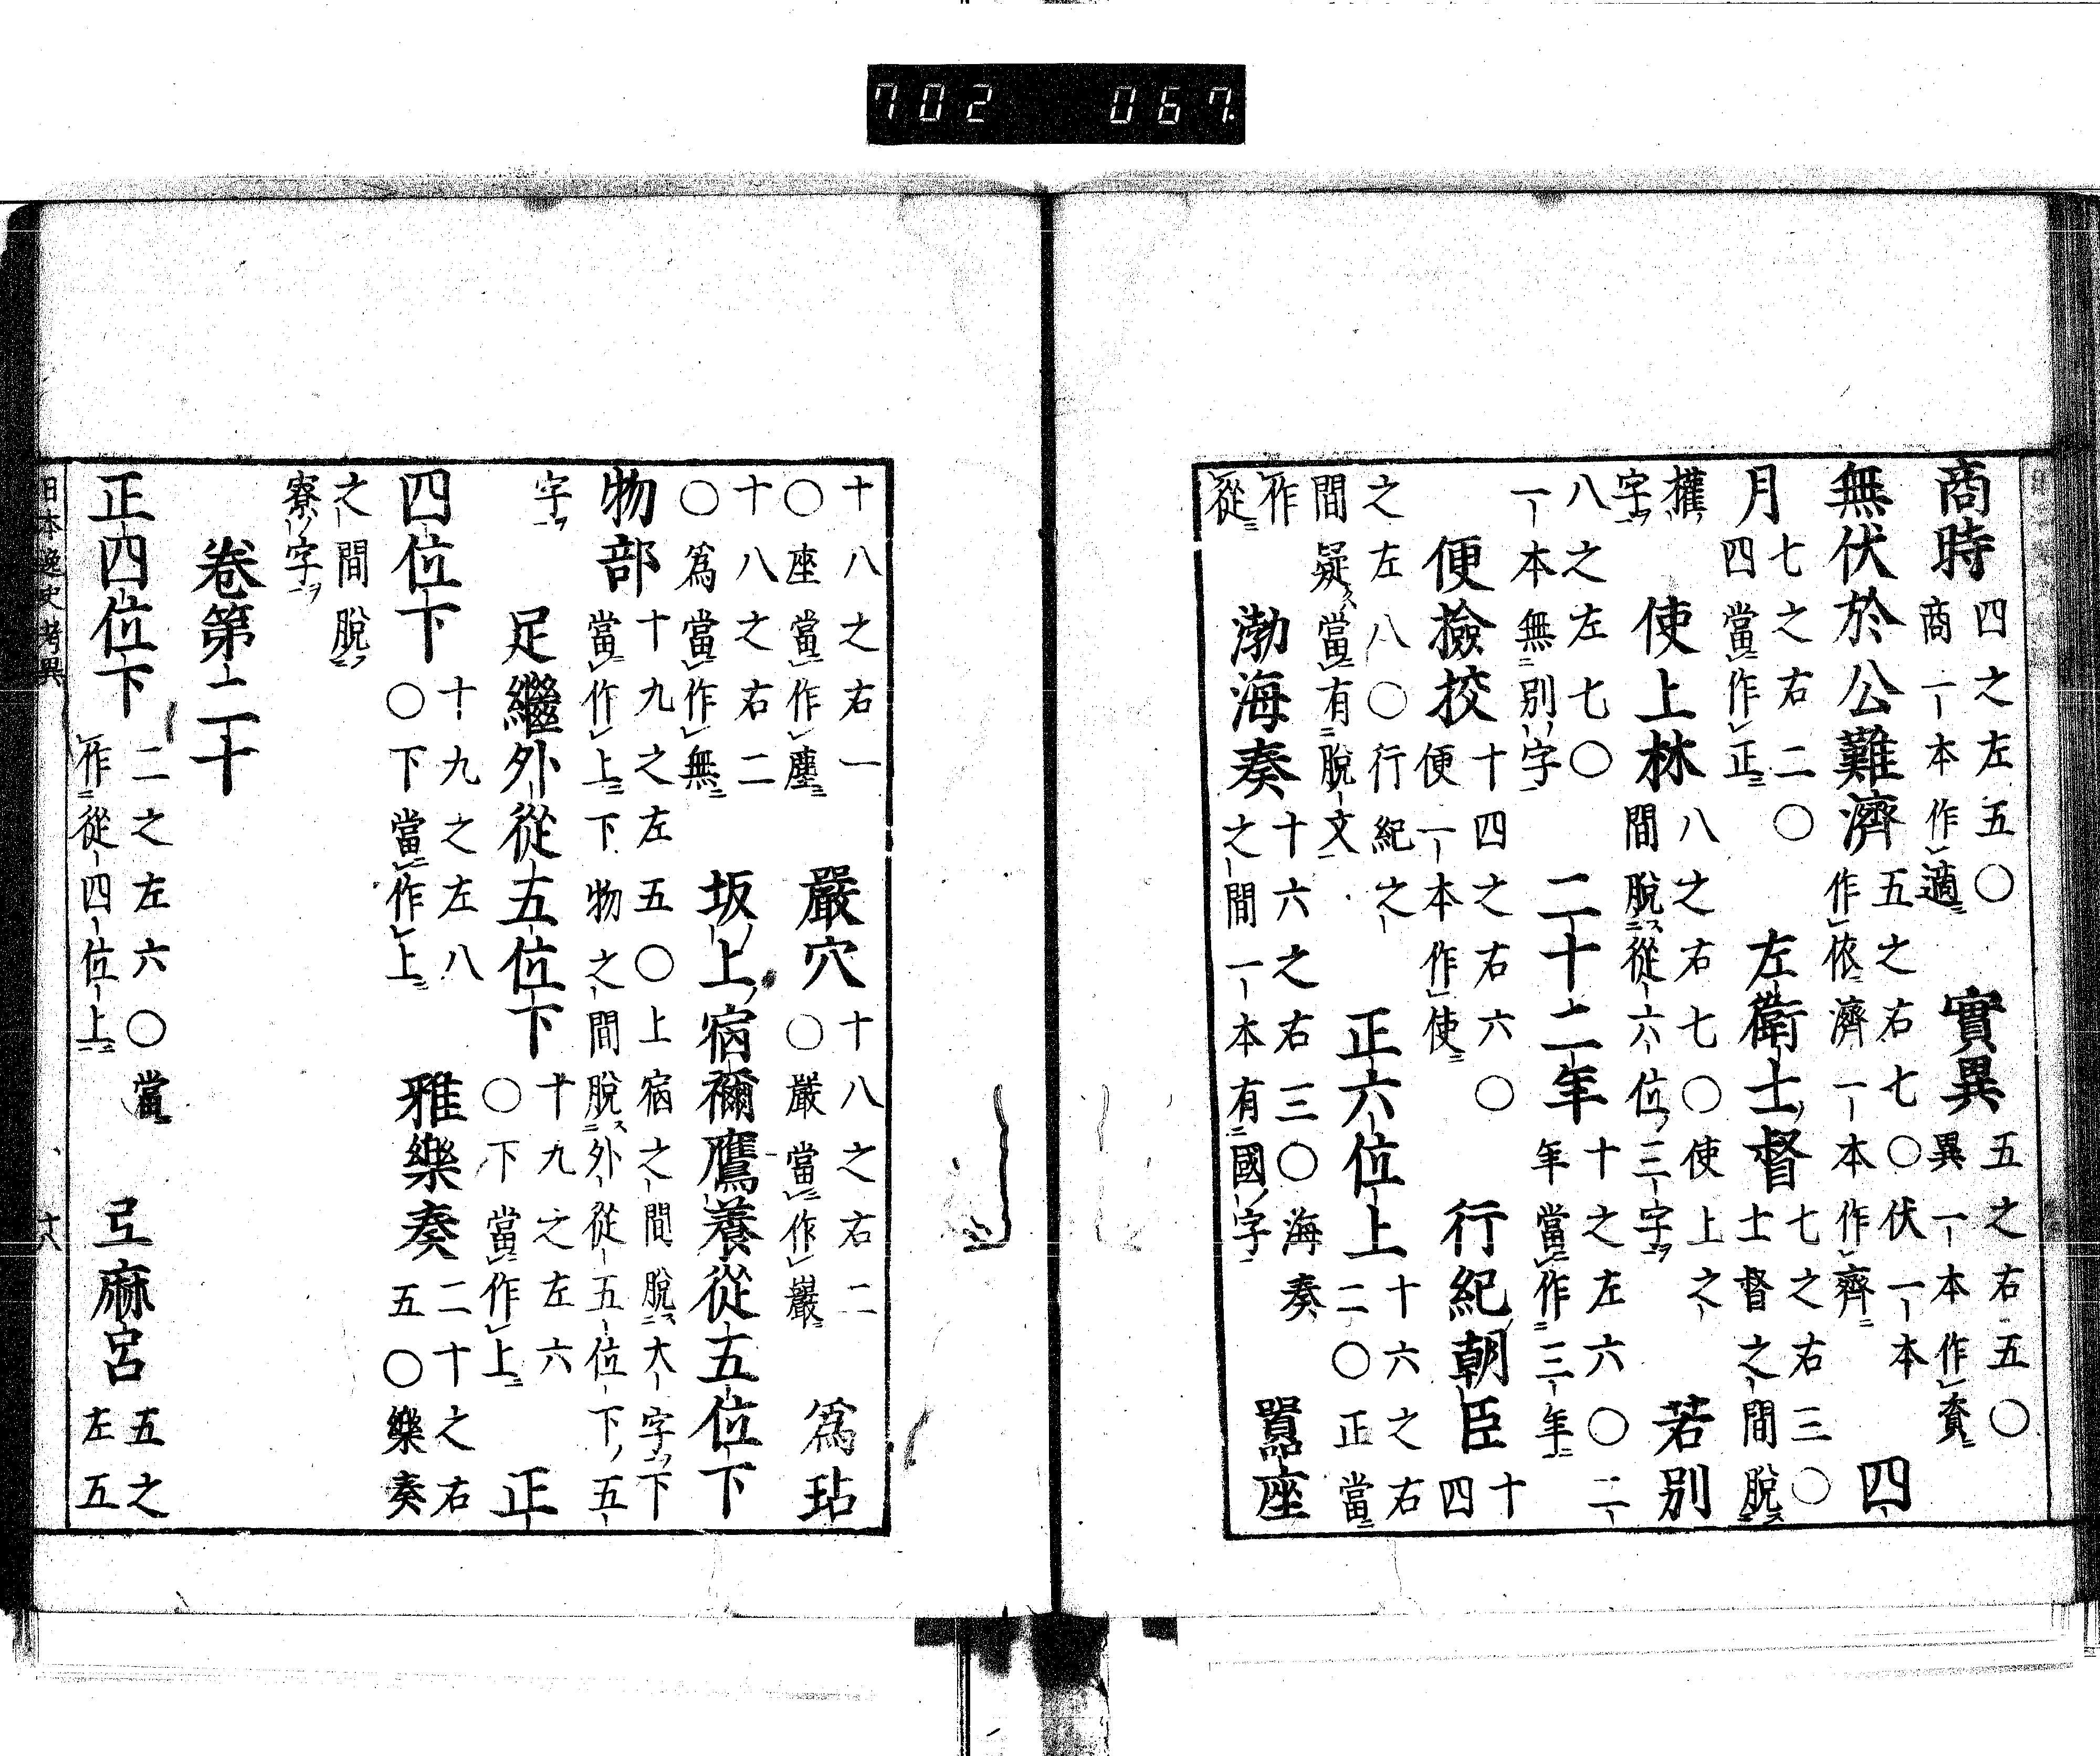 商時 四之左五〇商一本作適 實異 五之右五〇異一本作賚
無伏於公難濟 五之右七〇伏一本作依濟一本作齊 四
月 七之右二〇四當作正 左衛士督 七之右三〇士督之間脫
權字 使上林 八之右七〇使上之間脫從六位三字 若別
八之左七〇一本無別字 二十二年 十之左六〇二年當作三年
便撿挍 十四之右六〇便一本作使 行紀朝臣 十四
之左八〇行紀之間疑當有脫文 正六位上 十六之右二〇正當
作從 渤海奏 十六之右三〇海奏之間一本有國字 嚚座
十八之右一〇座當作塵 嚴穴 十八之右二〇嚴當作巖 為玷
十八之右二〇為當作無 坂上宿禰鷹養從五位下
物部 十九之左五〇上宿之間脫大字下當作上下物之間脫外從五位下五
字 足繼外從五位下 十九之左六〇下當作上 正
四位下 十九之左八〇下當作上 雅樂奏 二十之右五〇樂奏
之間脫寮字
卷第二十
正四位下 二之左六〇當作從四位上 弖麻呂 五之左五
日本逸史考異
702 067